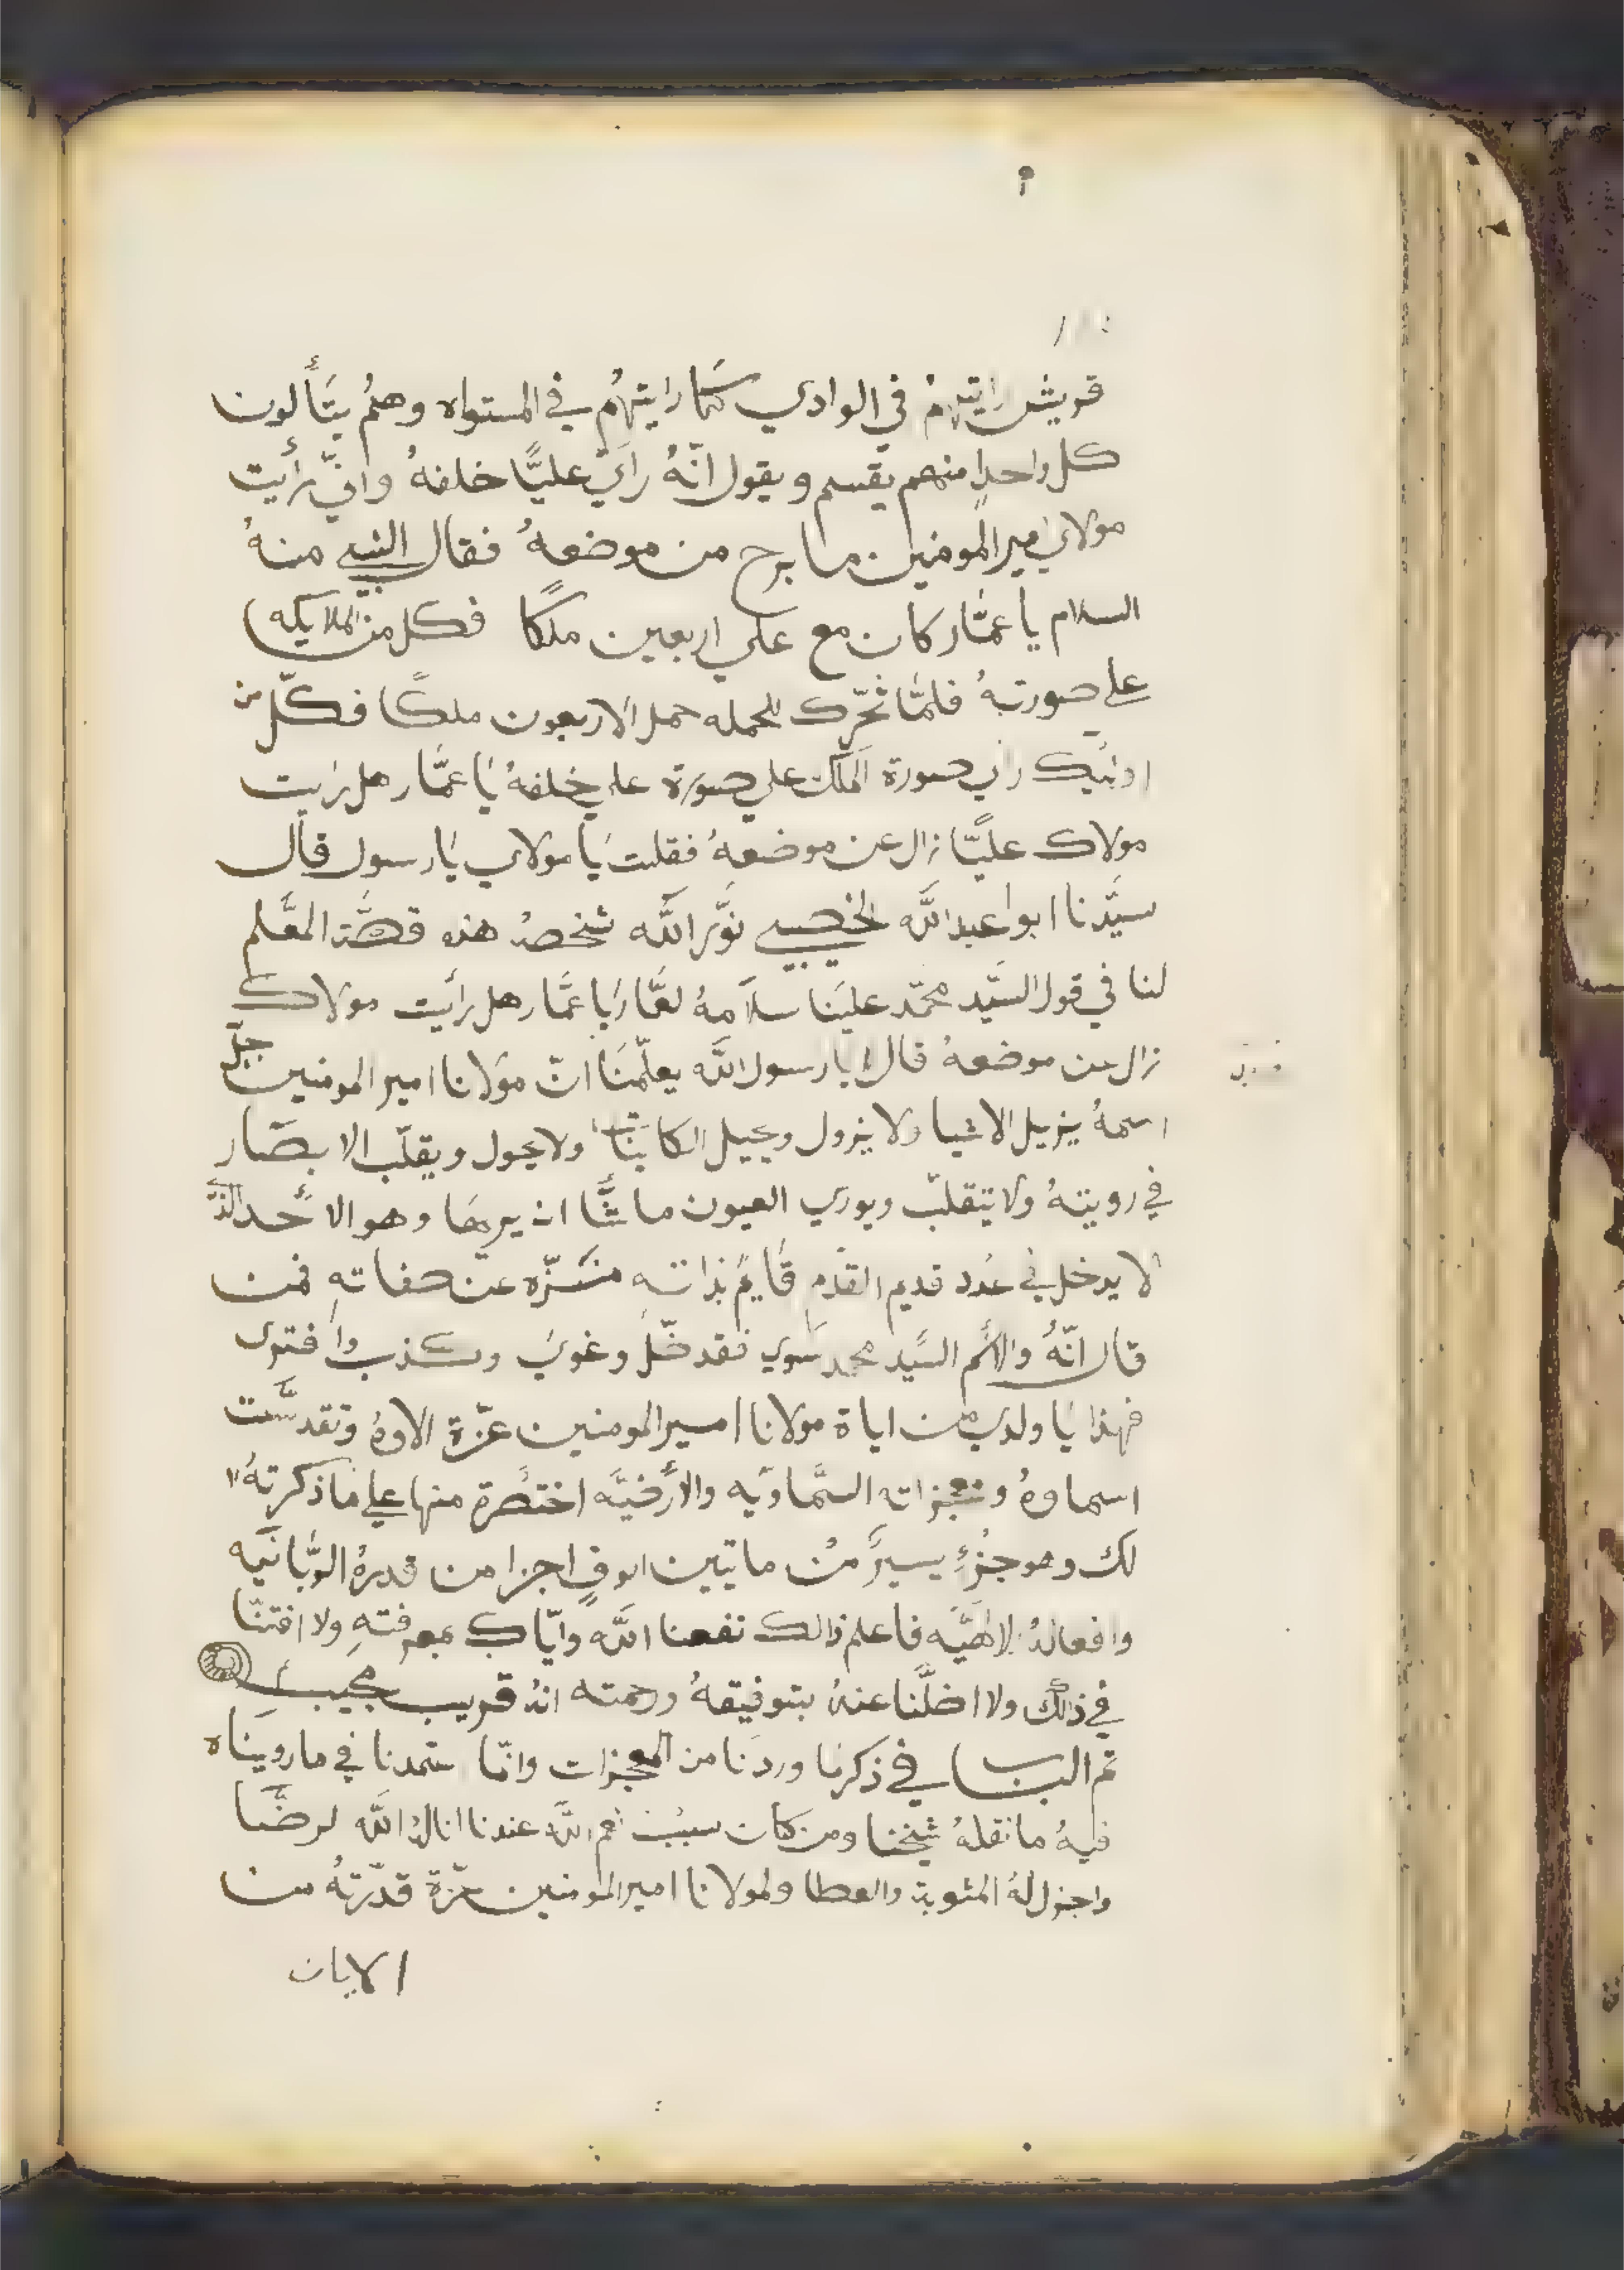 قريش رايتهم في الوادي كما رايتهُم في المستواه وهمُ يتأَلون
كل واحدٍ منهم يقسم ويقول انّهُ راي عليًّا خلفهُ واني رأيت
مولاي امير المومنين ما برح من موضعهُ فقال النبي منهُ
السلام يا عمَّار كان مع علي اربعين ملكًا فكل من الملايكه
على صورتهُ فلمَّا تحرّك للحمله حمل الاربعون ملكًا فكلّ من
اوليك راي صورة الملك على صورة علي خلفهُ يا عمَّار هل رايت
مولاك عليًّا زال عن موضعهُ فقلت يا مولاي يا رسول قال
سيَّدنا ابوا عبد اللَّه الخصيبي نوَّر اللَّه شخصهُ هذه قصَّة المعَّلم
لنا في قول السَّيد محمّد علينا سلامهُ لعمَّار يا عمَّار هل رأيت مولاك
زال عن موضعهُ قال لا يا رسول اللَّه يعلّمنا انّ مولانا امير المومنين جلّ
اسمهُ يزيل الاشيا ولا يزول ويحيل الكاينات ولا يحول ويقلّب الابصار
في رويتهُ ولا يتقلبّ ويوري العيون ما شَّا ان يريها وهو الاحد الذي
لا يدخل في عدد قديم القدم قايم بذاته منزّه عن صفاتهِ فمن
قال انّهُ والاسم السَّيد محمد سوي فقد ضّل وغوي وكذب وافتوى
فهذا يا ولدي من اياة مولانا امير المومنين عزّة الاوهُ وتقدسَّت
اسماوهُ ومعجزاته السَّماويه والأرضيَّه اختصرة منها على ما ذكرتهُ
لك وهو جزءٍ يسيرً منْ مايتين الوفٍ اجزا من قدرهُ الربَّانيه
وافعالهُ الالاهيَّه فاعلم ذالك نفعنا اللَّه وايّاك بمعرفتهِ ولا افتنَّا
في ذلك ولا اضلَّنا عنهُ بتوفيقهُ ورحمته انهُ قريب مجيب
تم الباب في ذكر ما وردنا من المعجزات وانّما ستمدنا في ما رويناه
فيهُ ما نقلهُ شيخنا ومن كان سبب نعم اللَّه عندنا انالهُ اللَّه لرضَّا
واجزل لهُ المثوبة والعطا ولمولانا امير المومنين عزّة قدّرتهُ من
الايات